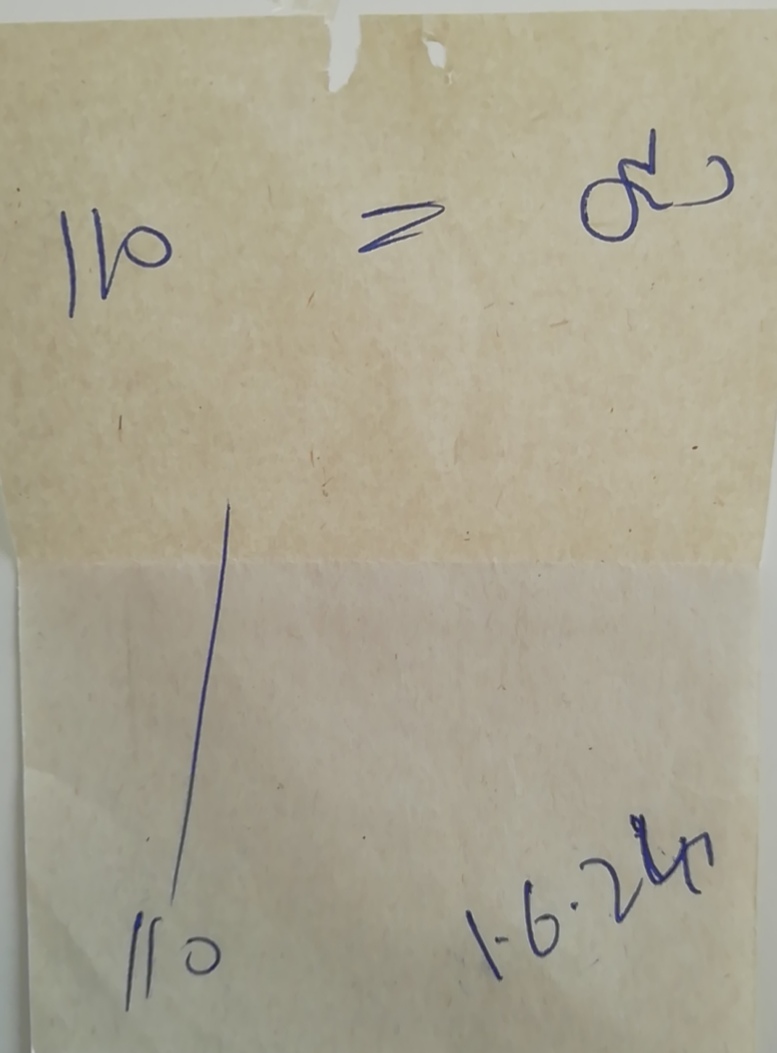 110 =
110
1.6.24